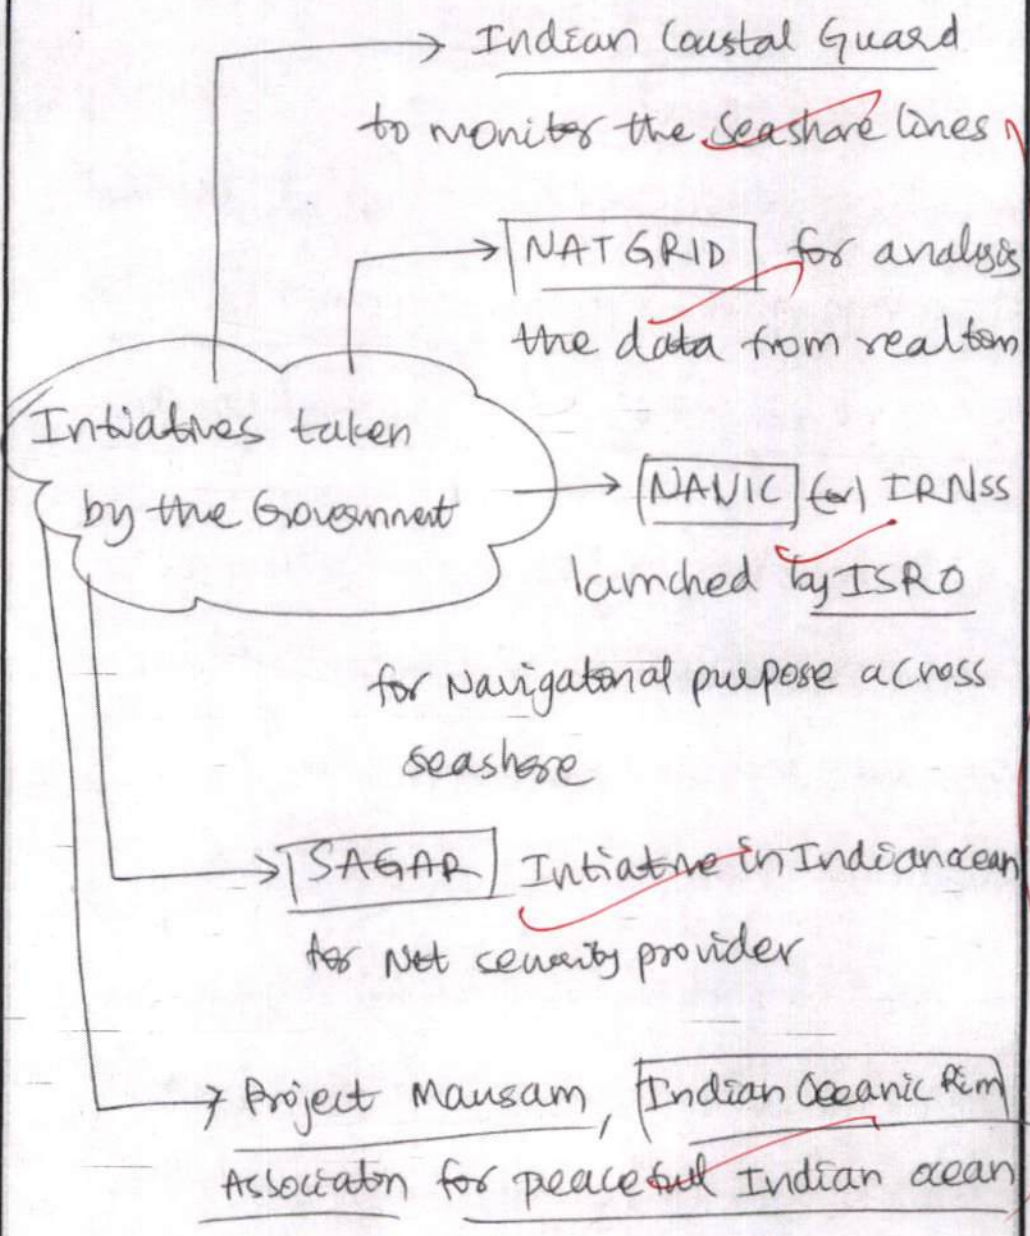 Indian Coustal Guard
to monitor the seashore lines
NATGRID for analysis
the data from realtim
Intiatives taken
by the Government
NAVIC (or) IRNSS
launched by ISRO
for Navigatonal purpose across
seashore
SAGAR Intiative in Indian ocean
for Net security provider
Project Mausam, Indian Oceanic Rim
Associatn for peaceful Indian ocean